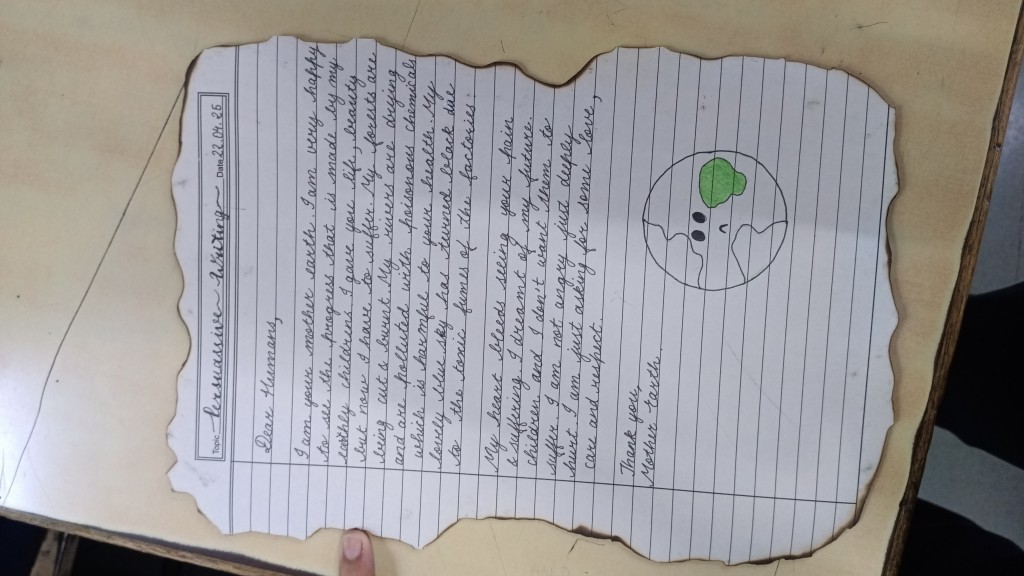 Topic:- Persuasive Writing Date:22.04.25
Dear Humans,
I am your mother earth. I am very happy
to see the progres that is made by my
earthly children. I gave you life, beauty
but now I have to suffer. My forests are
being cut & burnt. My rivers are crying
and are polluted with poisonous chemicals
which is harmful to your health. My
lovely blue sky has turned black due
to the toxic fums of the factories.
My heart bleeds seeing your pain
& suffering. I dreamt of my future
children and I don't want them to
suffer. I am not angry just deeply
hurt. I am just asking for some love,
care and respect.
Thank you,
Mother Earth.